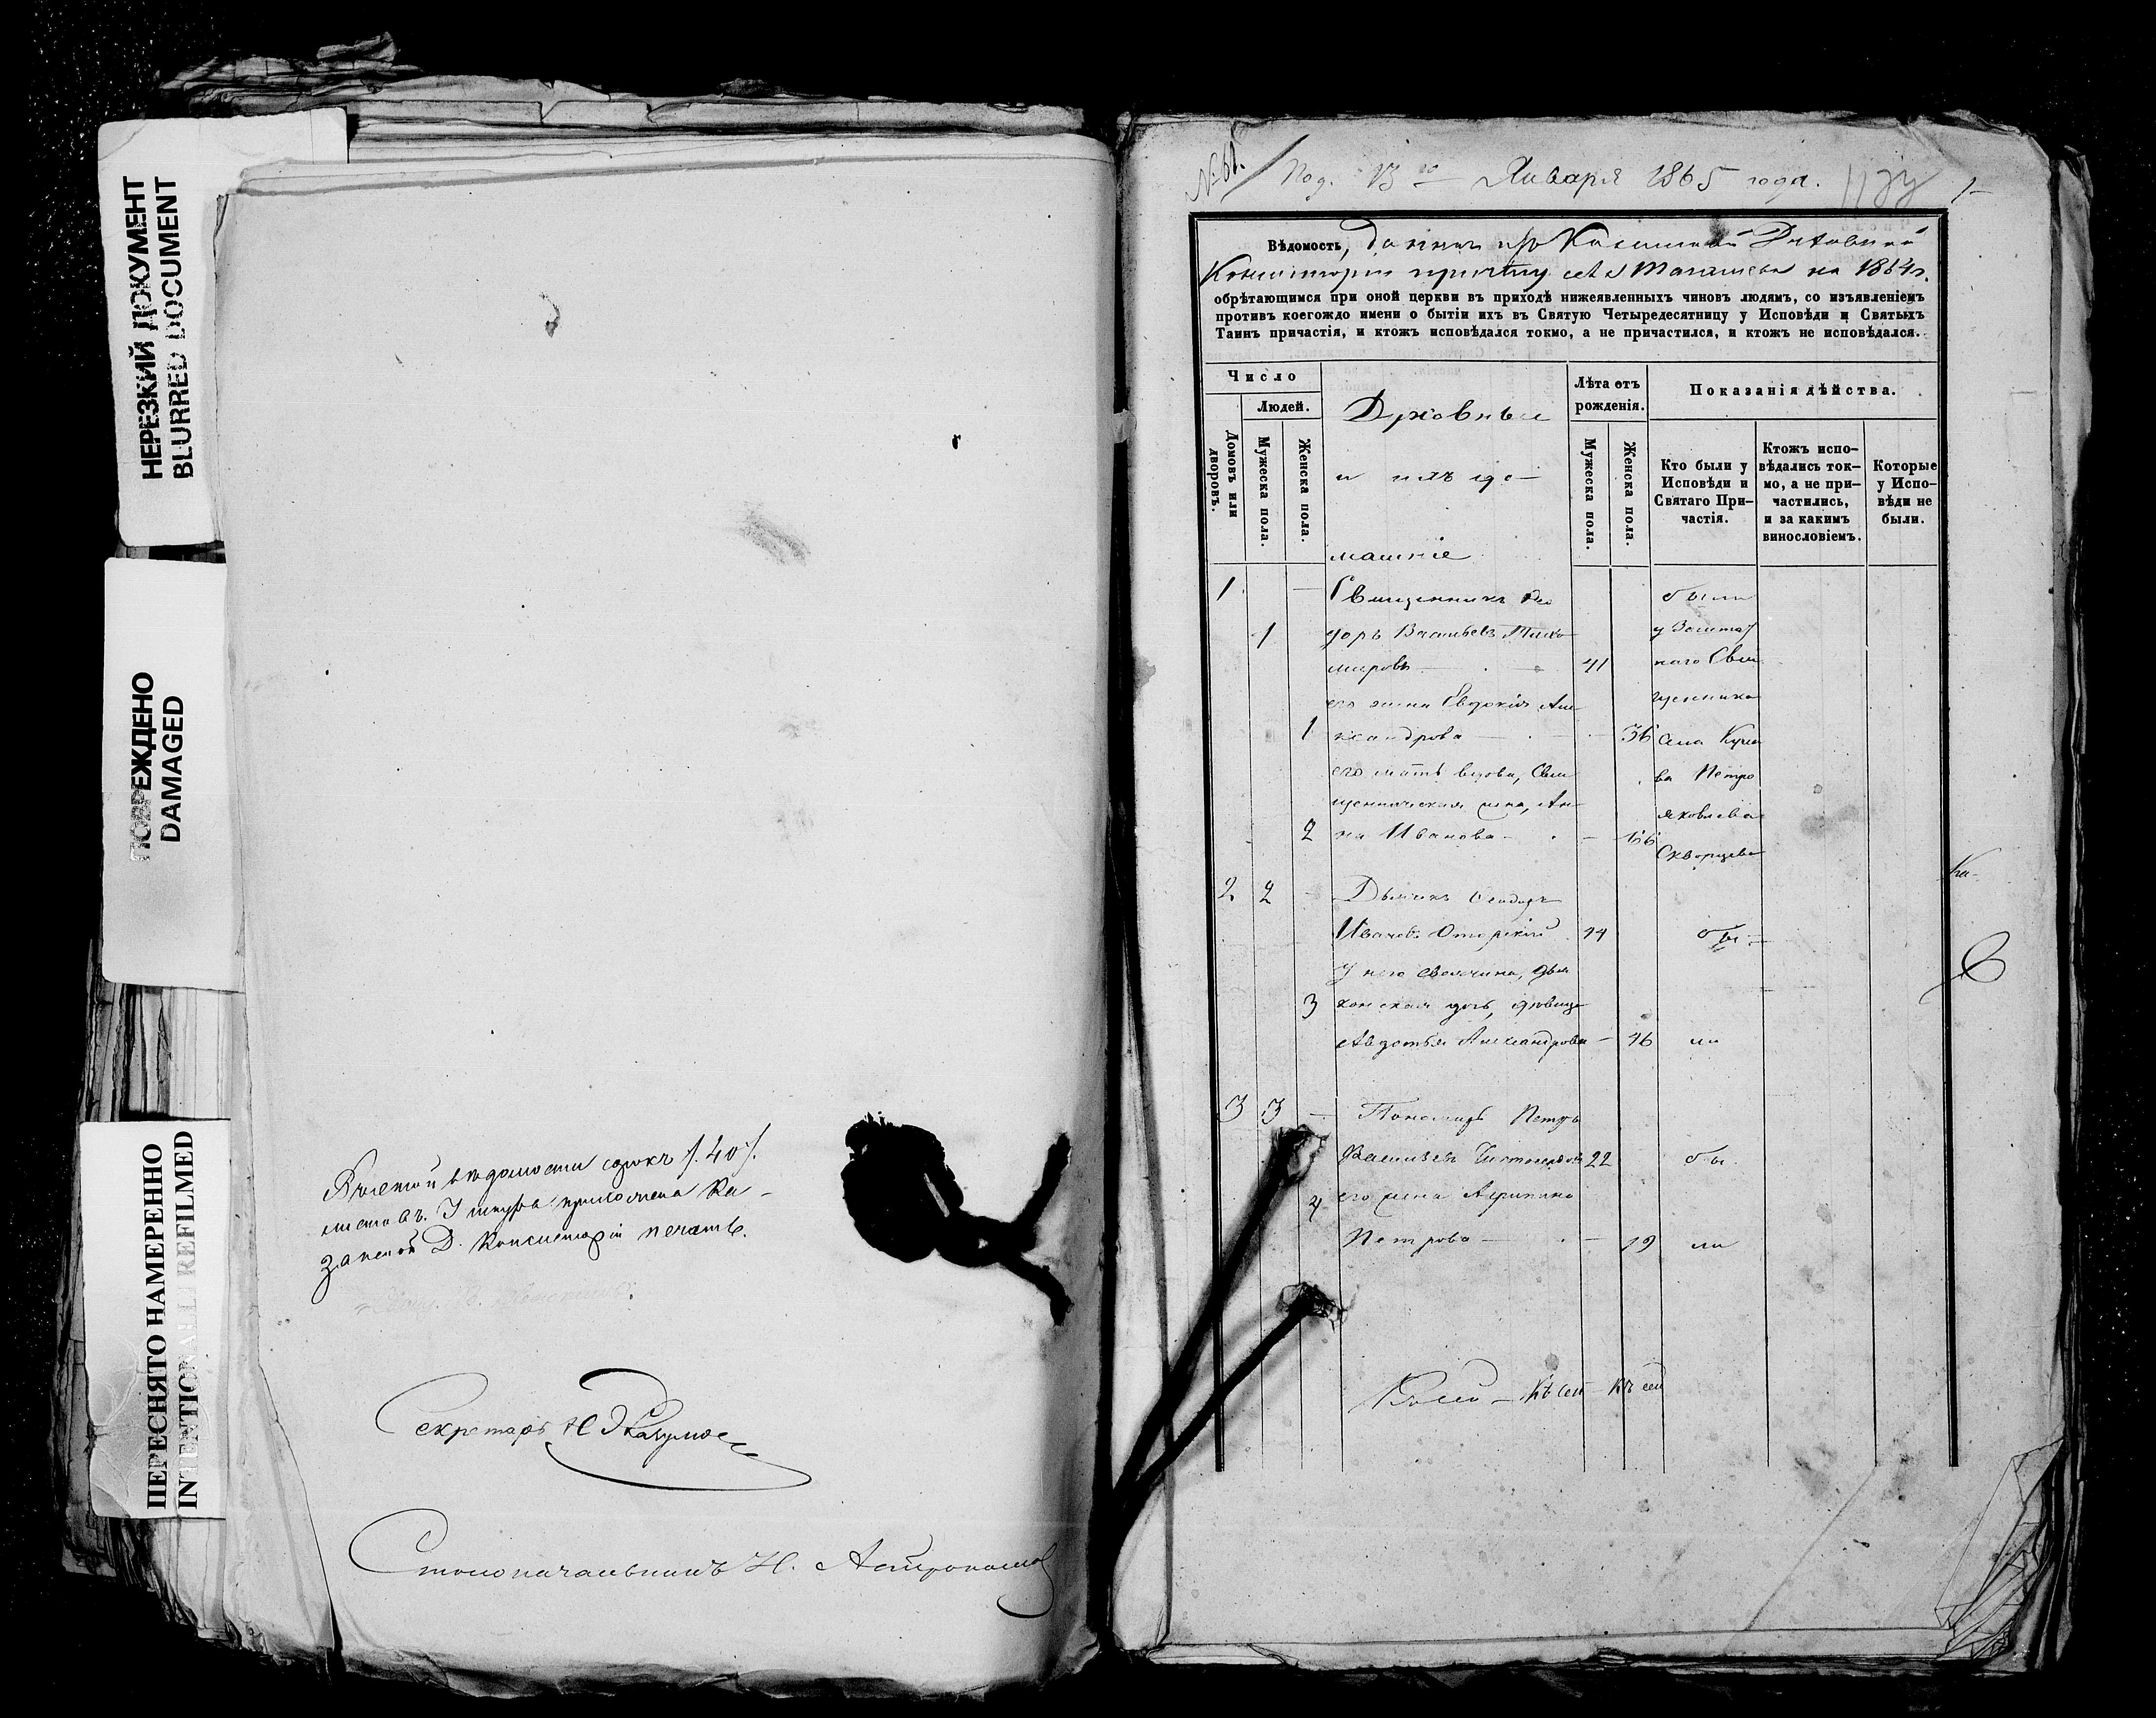 НЕРЕЗКИЙ ДОКУМЕНТ
BLURRED DOCUMENT
ПОВРЕЖДЕНО
DAMAGED
ПЕРЕСНЯТО НАМЕРЕННО
INTENTIONALLY REFILMED
В сей ведомости сорокъ /. 40 /.
листовъ. У шнура приложена Ка-
занской Д. Консисторіи печать.
Секретарь Н
Столоначальникъ Н.
№ 61.
Под. 13го Января 1865 года.
1
Вѣдомость, данная изъ Казанской Духовной
Консисторіи причту села на 1864 г.
обрѣтающимся при оной церкви въ приходѣ нижеявленныхъ чиновъ людямъ, со изъявленіемъ
противъ коегождо имени о бытіи ихъ въ Святую Четыредесятницу у Исповѣди и Святыхъ
Таинъ причастія, и ктожъ исповѣдался токмо, а не причастился, и ктожъ не исповѣдался.
Число
Людей.
Домовъ или дворовъ.
Мужеска пола.
Женска пола.
Духовные
и ихъ до-
машніе
Лѣта отъ
рожденія.
Мужеска пола.
Женска пола.
Показанія дѣйства.
Кто были у
Исповѣди и
Святаго При-
частія.
Ктожъ испо-
вѣдались ток-
мо, а не при-
частились,
и за какимъ
винословіемъ.
Которые
у Испо-
вѣди не
были.
1 Священникъ Ѳео были
1 доръ Васильевъ Тихо у Заштат
мировъ 41 наго Свя
его жена Евдокія Але щенника
1 ксандрова 36 села
его мать вдова, Свя Петра
щенническая жена, Ан Яковлева
2 на Иванова 66 Скворцова
2 2 Дьячекъ Ѳеодоръ
Ивановъ 44 бы
У него своячина, дья
3 конская дочь, дѣвица
Авдотья Александрова 46 ли
3 3 Пономарь Петръ
Васильевъ 22 бы
4 его жена Агрипина
Петрова 19 ли
Ка-